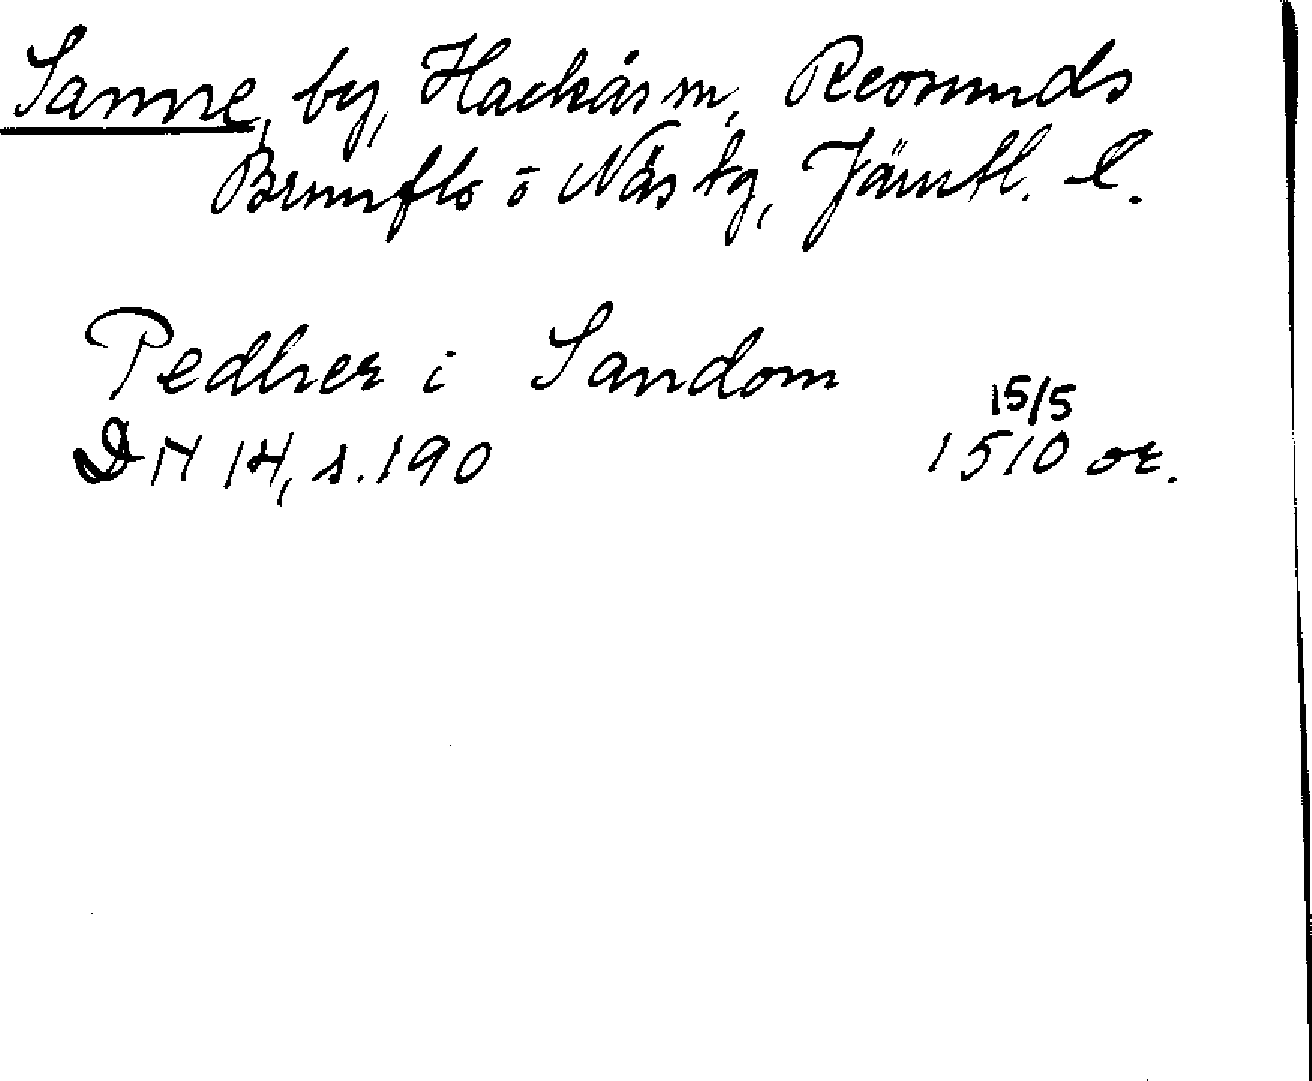 Sanne, by, Hackås sn, Revsunds
Brunflo o Näs tg, Jämtl. l.
Pedher i Sandom
15/5
DN 14, s. 190 1510 or.